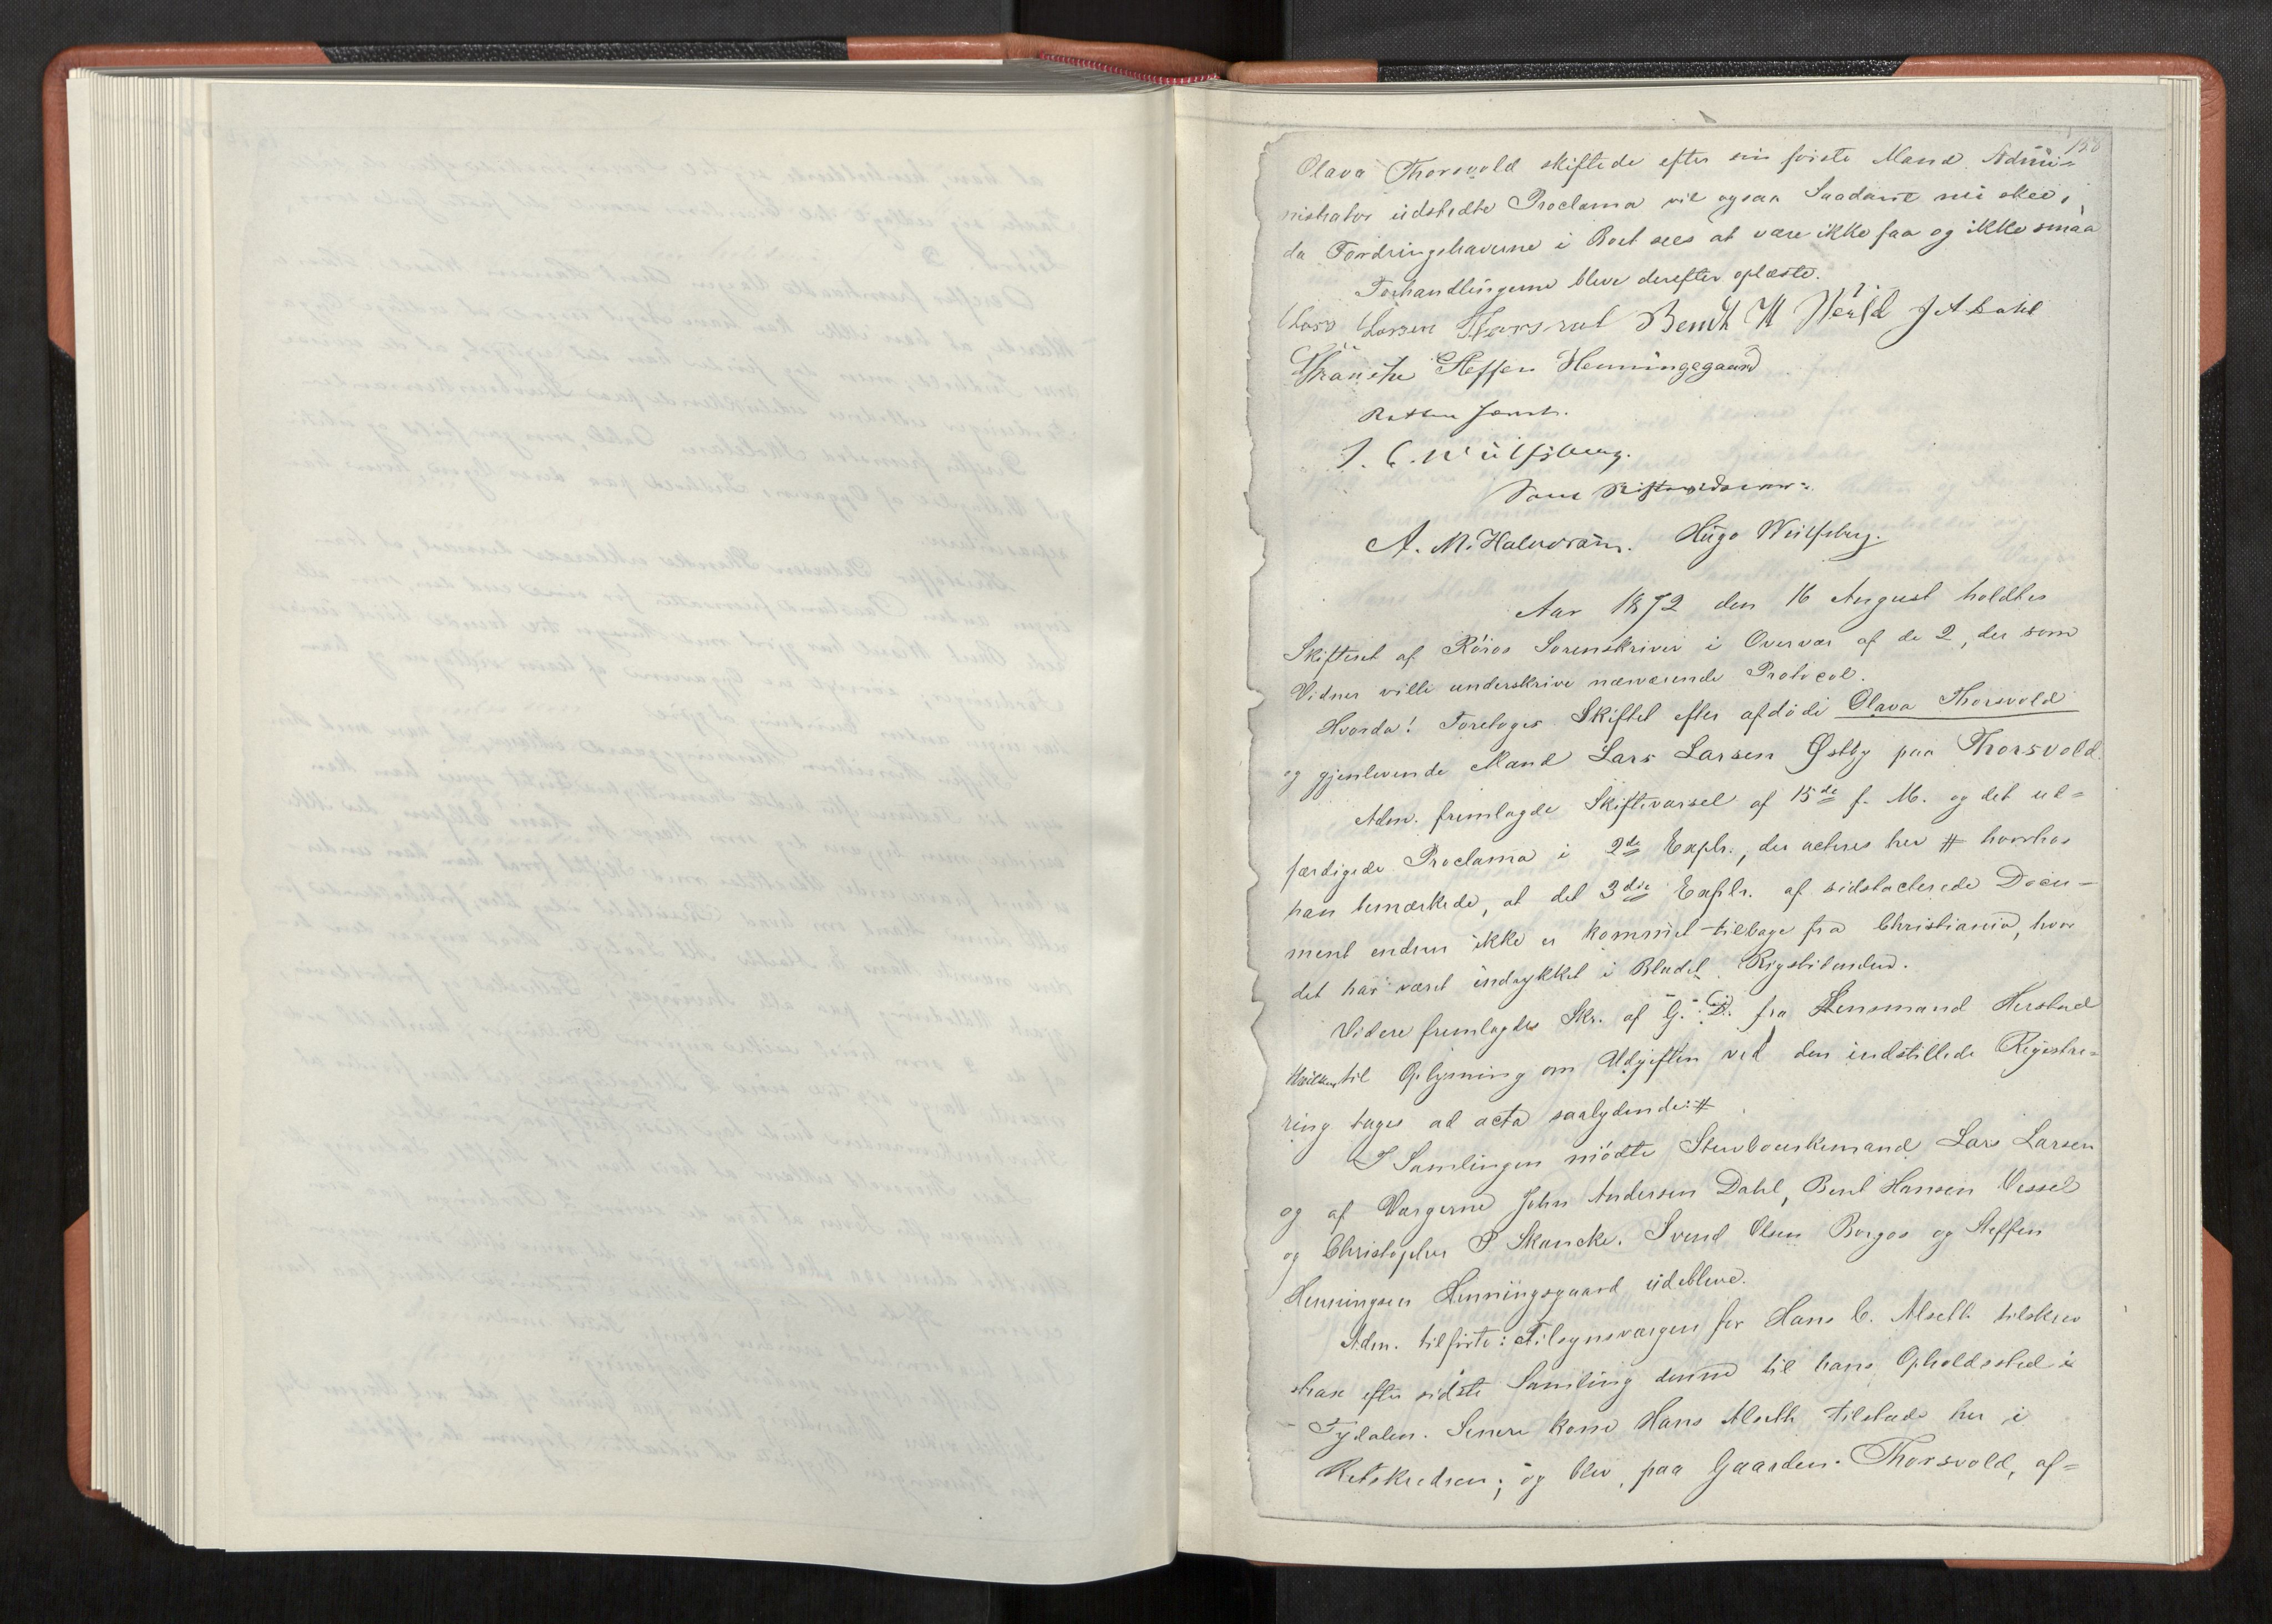 158
Olava Thorsvold skiftede efter sin første Mand Admi-
nistrator udstedte Proclama vil ogsaa Saadant nu skee,
da Fordringshaverne i Boet sees at være ikke faa og ikke smaa
Forhandlingerne bleve derefter oplæste.
Lars Larsen Bendt H J A Dahl
Steffen Henningsgaard
J. C. Wülfsberg.
Som Skiftevidner:
A. M. Hugo Wülfsberg.
Aar 1872 den 16 August holdtes
Skifteret af Røros Sorenskriver i Overvær af de 2, der som
Vidner ville underskrive nærværende Protocol.
Hvorda! Foretoges Skiftet efter afdøde Olava Thorsvold
og gjenlevende Mand Lars Larsen Østby paa Thorsvold.
Adm. fremlagde Skiftevarsel af 15de f. M. og det ud-
færdigede Proclama i 2de Explr., der acteres her # hvorhos
han bemærkede, at det 3die Explr. af sidstacterede Docu-
ment endnu ikke er kommet tilbage fra Christiania, hvor
det har været indrykket i Bladet Rigstidenden.
Videre fremlagdes Skr. af G. D. fra Lensmand Herstad
til Oplysning om Udgiften ved den indstillede Registre-
ring tages ad acta saalydende: #
I Samlingen mødte Stervboenkemand Lars Larsen
og af Værgerne John Andersen Dahl, Bent Hansen Vessel
og Christopher P Skancke. Svend Olsen Borgos og Steffen
Henningsen Henningsgaard udebleve.
Adm. tilførte: Tilsynsværgen for Hans C. Alseth tilskrev
strax efter sidste Samling denne til hans Opholdssted i
Tydalen. Senere kom Hans Alseth tilstede her i
Retskredsen; og blev, paa Gaarden Thorsvold, af-